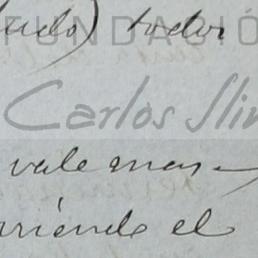 ndo) todos
FUNDACIÓ
Carlos Slim
vale mas
riendo el